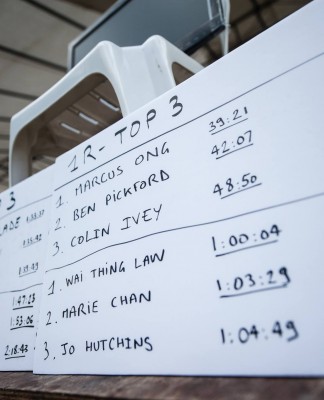 3
ADE
1R - TOP 3
1. MARCUS ONG 39:21
2. BEN PICKFORD 42:07
3. COLIN IVEY 48:50
1. WAI THING LAW 1:00:04
2. MARIE CHAN 1:03:29
3. JO HUTCHINS 1:04:49
1:47:23
1:53:06
2:18:43